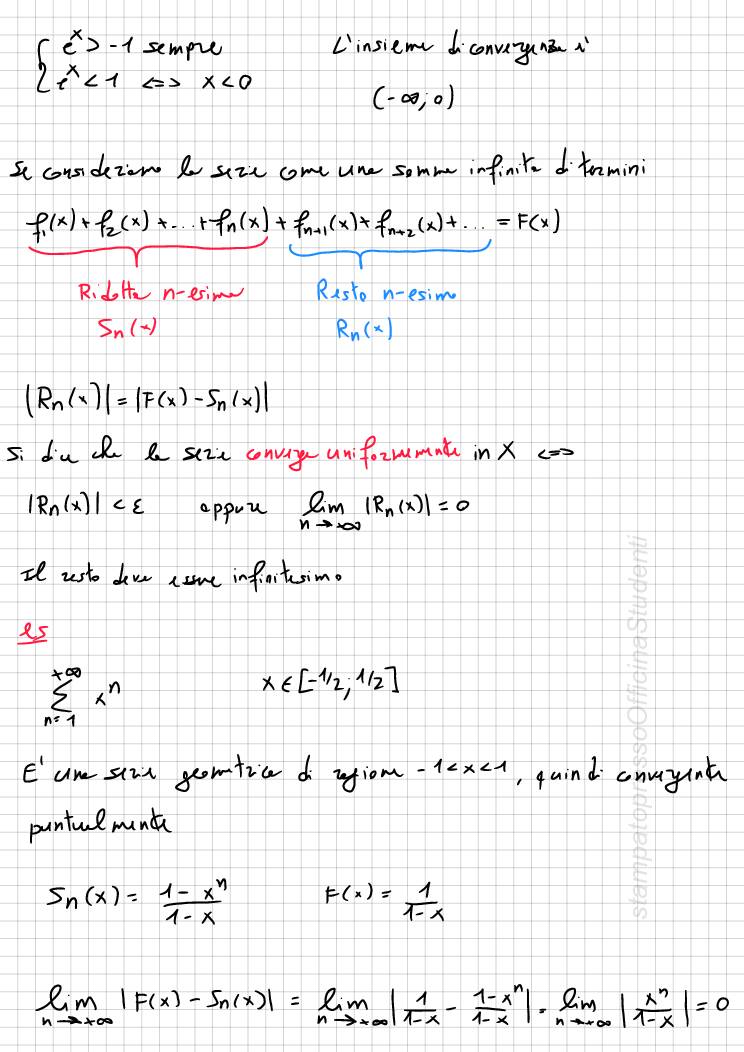 { e^x > -1 sempre L'insieme di convergenza è
{ e^x < 1 <=> x < 0
(-∞; 0)
Se consideriamo la serie come una somma infinita di termini
f₁(x) + f₂(x) + ... + fₙ(x) + fₙ₊₁(x) + fₙ₊₂(x) + ... = F(x)
Ridotta n-esima Resto n-esimo
Sₙ(x) Rₙ(x)
|Rₙ(x)| = |F(x) - Sₙ(x)|
Si dice che la serie converge uniformemente in X <=>
|Rₙ(x)| < ε oppure lim n→+∞ |Rₙ(x)| = 0
Il resto deve essere infinitesimo
es
+∞ ∑ n=1 xⁿ x ∈ [-1/2; 1/2]
E' una serie geometrica di ragione -1 < x < 1, quindi convergente
puntualmente
Sₙ(x) = (1 - xⁿ)/(1 - x) F(x) = 1/(1 - x)
lim n→+∞ |F(x) - Sₙ(x)| = lim n→+∞ |1/(1-x) - (1-xⁿ)/(1-x)| = lim n→+∞ |xⁿ/(1-x)| = 0
stampatopressoOfficinaStudenti